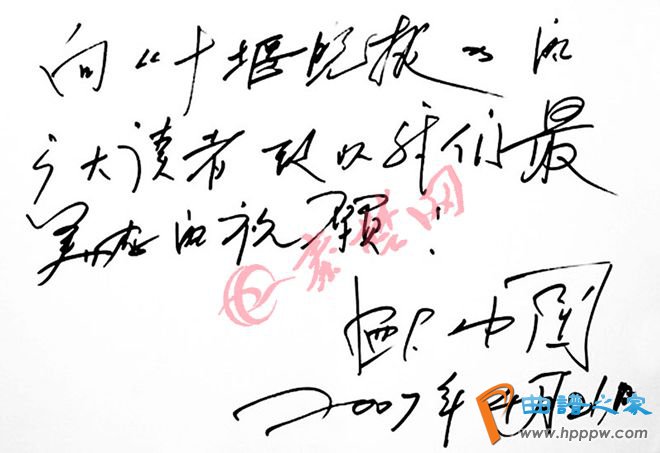 向《十堰晚报》的
广大读者致以我们最
美好的祝愿!
秦楚网
2007年
曲谱之家
www.hpppw.com